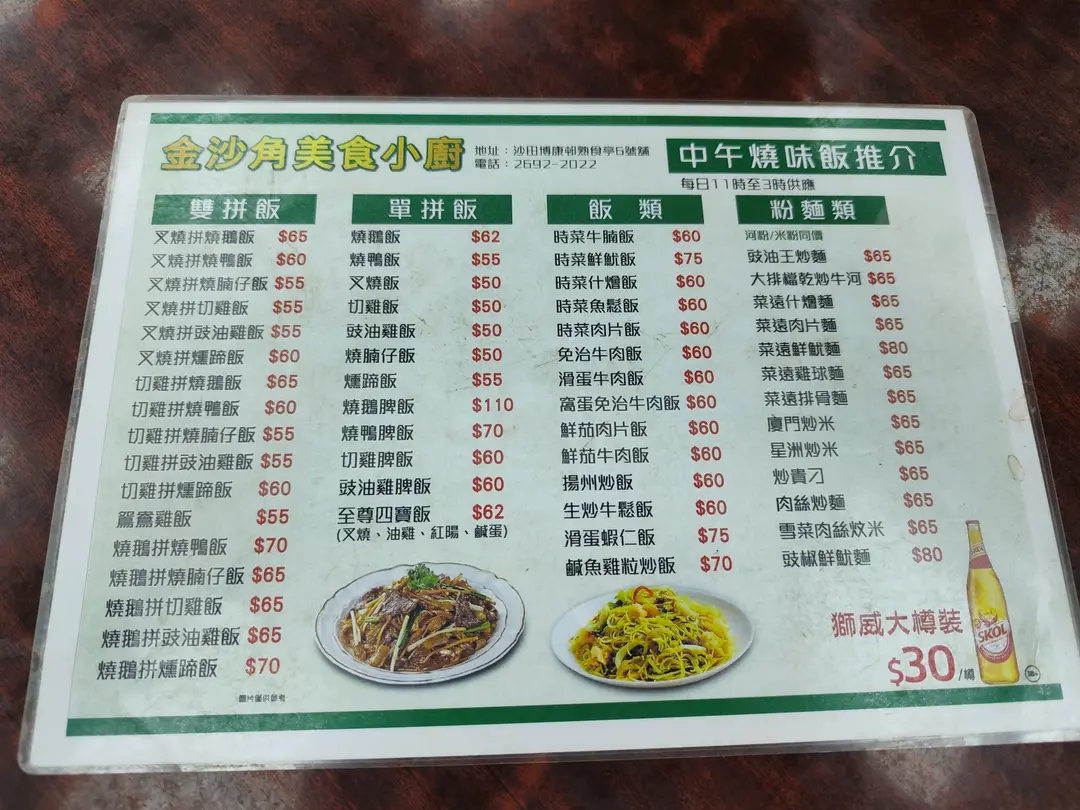 金沙角美食小廚
地址：沙田博康邨熟食亭6號舖
電話：2692-2022
中午燒味飯推介
每日11時至3時供應
雙拼飯
叉燒拼燒鵝飯 $65
叉燒拼燒鴨飯 $60
叉燒拼燒腩仔飯 $55
叉燒拼切雞飯 $55
叉燒拼豉油雞飯 $55
叉燒拼燻蹄飯 $60
切雞拼燒鵝飯 $65
切雞拼燒鴨飯 $60
切雞拼燒腩仔飯 $55
切雞拼豉油雞飯 $55
切雞拼燻蹄飯 $60
鴛鴦雞飯 $55
燒鵝拼燒鴨飯 $70
燒鵝拼燒腩仔飯 $65
燒鵝拼切雞飯 $65
燒鵝拼豉油雞飯 $65
燒鵝拼燻蹄飯 $70
單拼飯
燒鵝飯 $62
燒鴨飯 $55
叉燒飯 $50
切雞飯 $50
豉油雞飯 $50
燒腩仔飯 $50
燻蹄飯 $55
燒鵝脾飯 $110
燒鴨脾飯 $70
切雞脾飯 $60
豉油雞脾飯 $60
至尊四寶飯 $62
(叉燒、油雞、紅腸、鹹蛋)
飯類
時菜牛腩飯 $60
時菜鮮魷飯 $75
時菜什燴飯 $60
時菜魚鬆飯 $60
時菜肉片飯 $60
免治牛肉飯 $60
滑蛋牛肉飯 $60
窩蛋免治牛肉飯 $60
鮮茄肉片飯 $60
鮮茄牛肉飯 $60
揚州炒飯 $60
生炒牛鬆飯 $60
滑蛋蝦仁飯 $75
鹹魚雞粒炒飯 $70
粉麵類
河粉/米粉同價
豉油王炒麵 $65
大排檔乾炒牛河 $65
菜遠什燴麵 $65
菜遠肉片麵 $65
菜遠鮮魷麵 $80
菜遠雞球麵 $65
菜遠排骨麵 $65
廈門炒米 $65
星洲炒米 $65
炒貴刁 $65
肉絲炒麵 $65
雪菜肉絲炆米 $65
豉椒鮮魷麵 $80
獅威大樽裝
$30/樽
SKOL
18+
圖片僅供參考